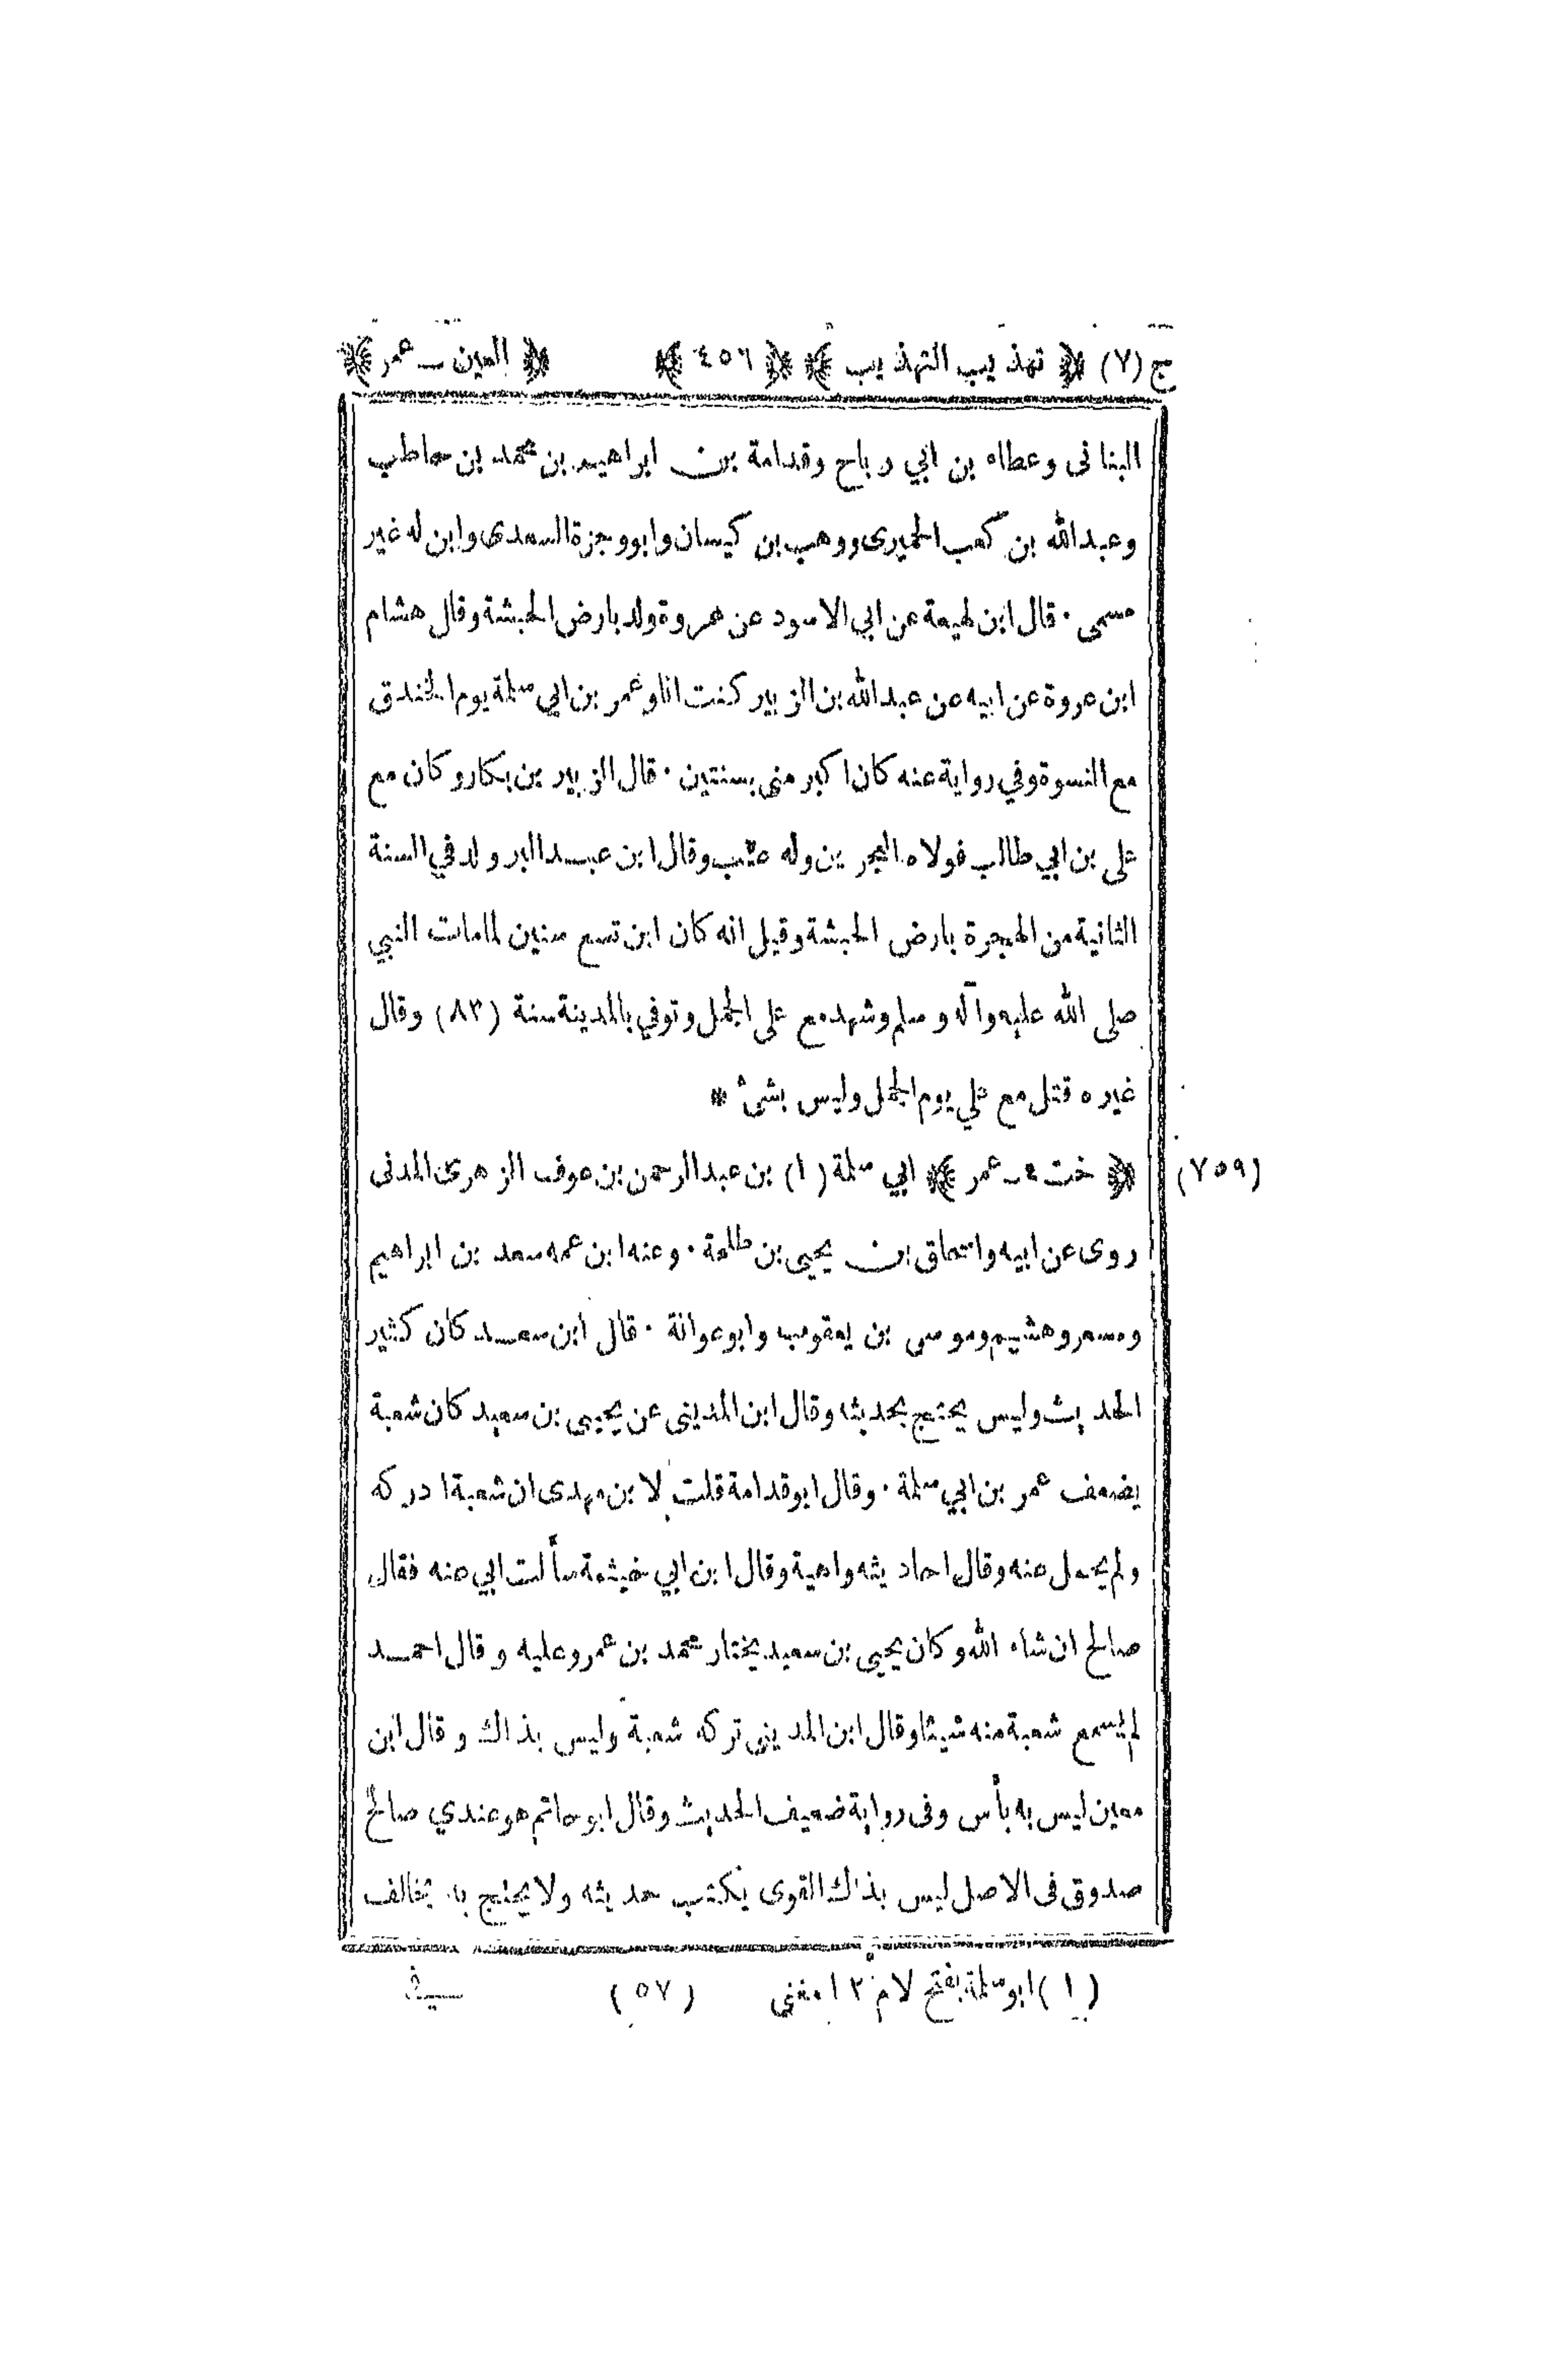 ج (٧) ﴿ تهذيب التهذيب ﴾ ﴿ ٤٥٦ ﴾ ﴿ العين ـ عمر ﴾
البنانى وعطاء بن ابي رباح وقدامة بن ابراهيم بن محمد بن حاطب
وعبدالله بن كعب الحميرى ووهب بن كيسان وابو وجزة السعدى وابن له غير
مسمى ٠ قال ابن لهيعة عن ابي الاسود عن عروة ولد بارض الحبشة وقال هشام
ابن عروة عن ابيه عن عبدالله بن الزبير كنت انا وعمر بن ابي سلمة يوم الخندق
مع النسوة وفي رواية عنه كان اكبر منى بسنتين ٠ قال الزبير بن بكار وكان مع
على بن ابي طالب فولاه البحرين وله عقب وقال ابن عبد البر ولد في السنة
الثانية من الهجرة بارض الحبشة وقيل انه كان ابن تسع سنين لما مات النبي
صلى الله عليه وآله وسلم وشهد مع على الجمل وتوفي بالمدينة سنة (٨٣) وقال
غيره قتل مع علي يوم الجمل وليس بشئ *
(٧٥٩) ﴿ خت ٤ ـ عمر ﴾ ابي سلمة (١) بن عبدالرحمن بن عوف الزهرى المدنى
روى عن ابيه واسحاق بن يحيى بن طلحة ٠ وعنه ابن عمه سعد بن ابراهيم
ومسعر وهشيم وموسى بن يعقوب وابو عوانة ٠ قال ابن سعد كان كثير
الحديث وليس يحتج بحديثه وقال ابن المدينى عن يحيى بن سعيد كان شعبة
يضعف عمر بن ابي سلمة ٠ وقال ابو قدامة قلت لابن مهدى ان شعبة ادركه
ولم يحمل عنه وقال احاديثه واهية وقال ابن ابي خيثمة سألت ابي عنه فقال
صالح ان شاء الله وكان يحيى بن سعيد يختار محمد بن عمرو عليه وقال احمد
لم يسمع شعبة منه شيئا وقال ابن المدينى تركه شعبة وليس بذاك وقال ابن
معين ليس به بأس وفى رواية ضعيف الحديث وقال ابو حاتم هو عندي صالح
صدوق فى الاصل ليس بذاك القوى يكتب حديثه ولا يحتج به يخالف
(١) ابو سلمة بفتح لام ١٢ مغني (٥٧) في